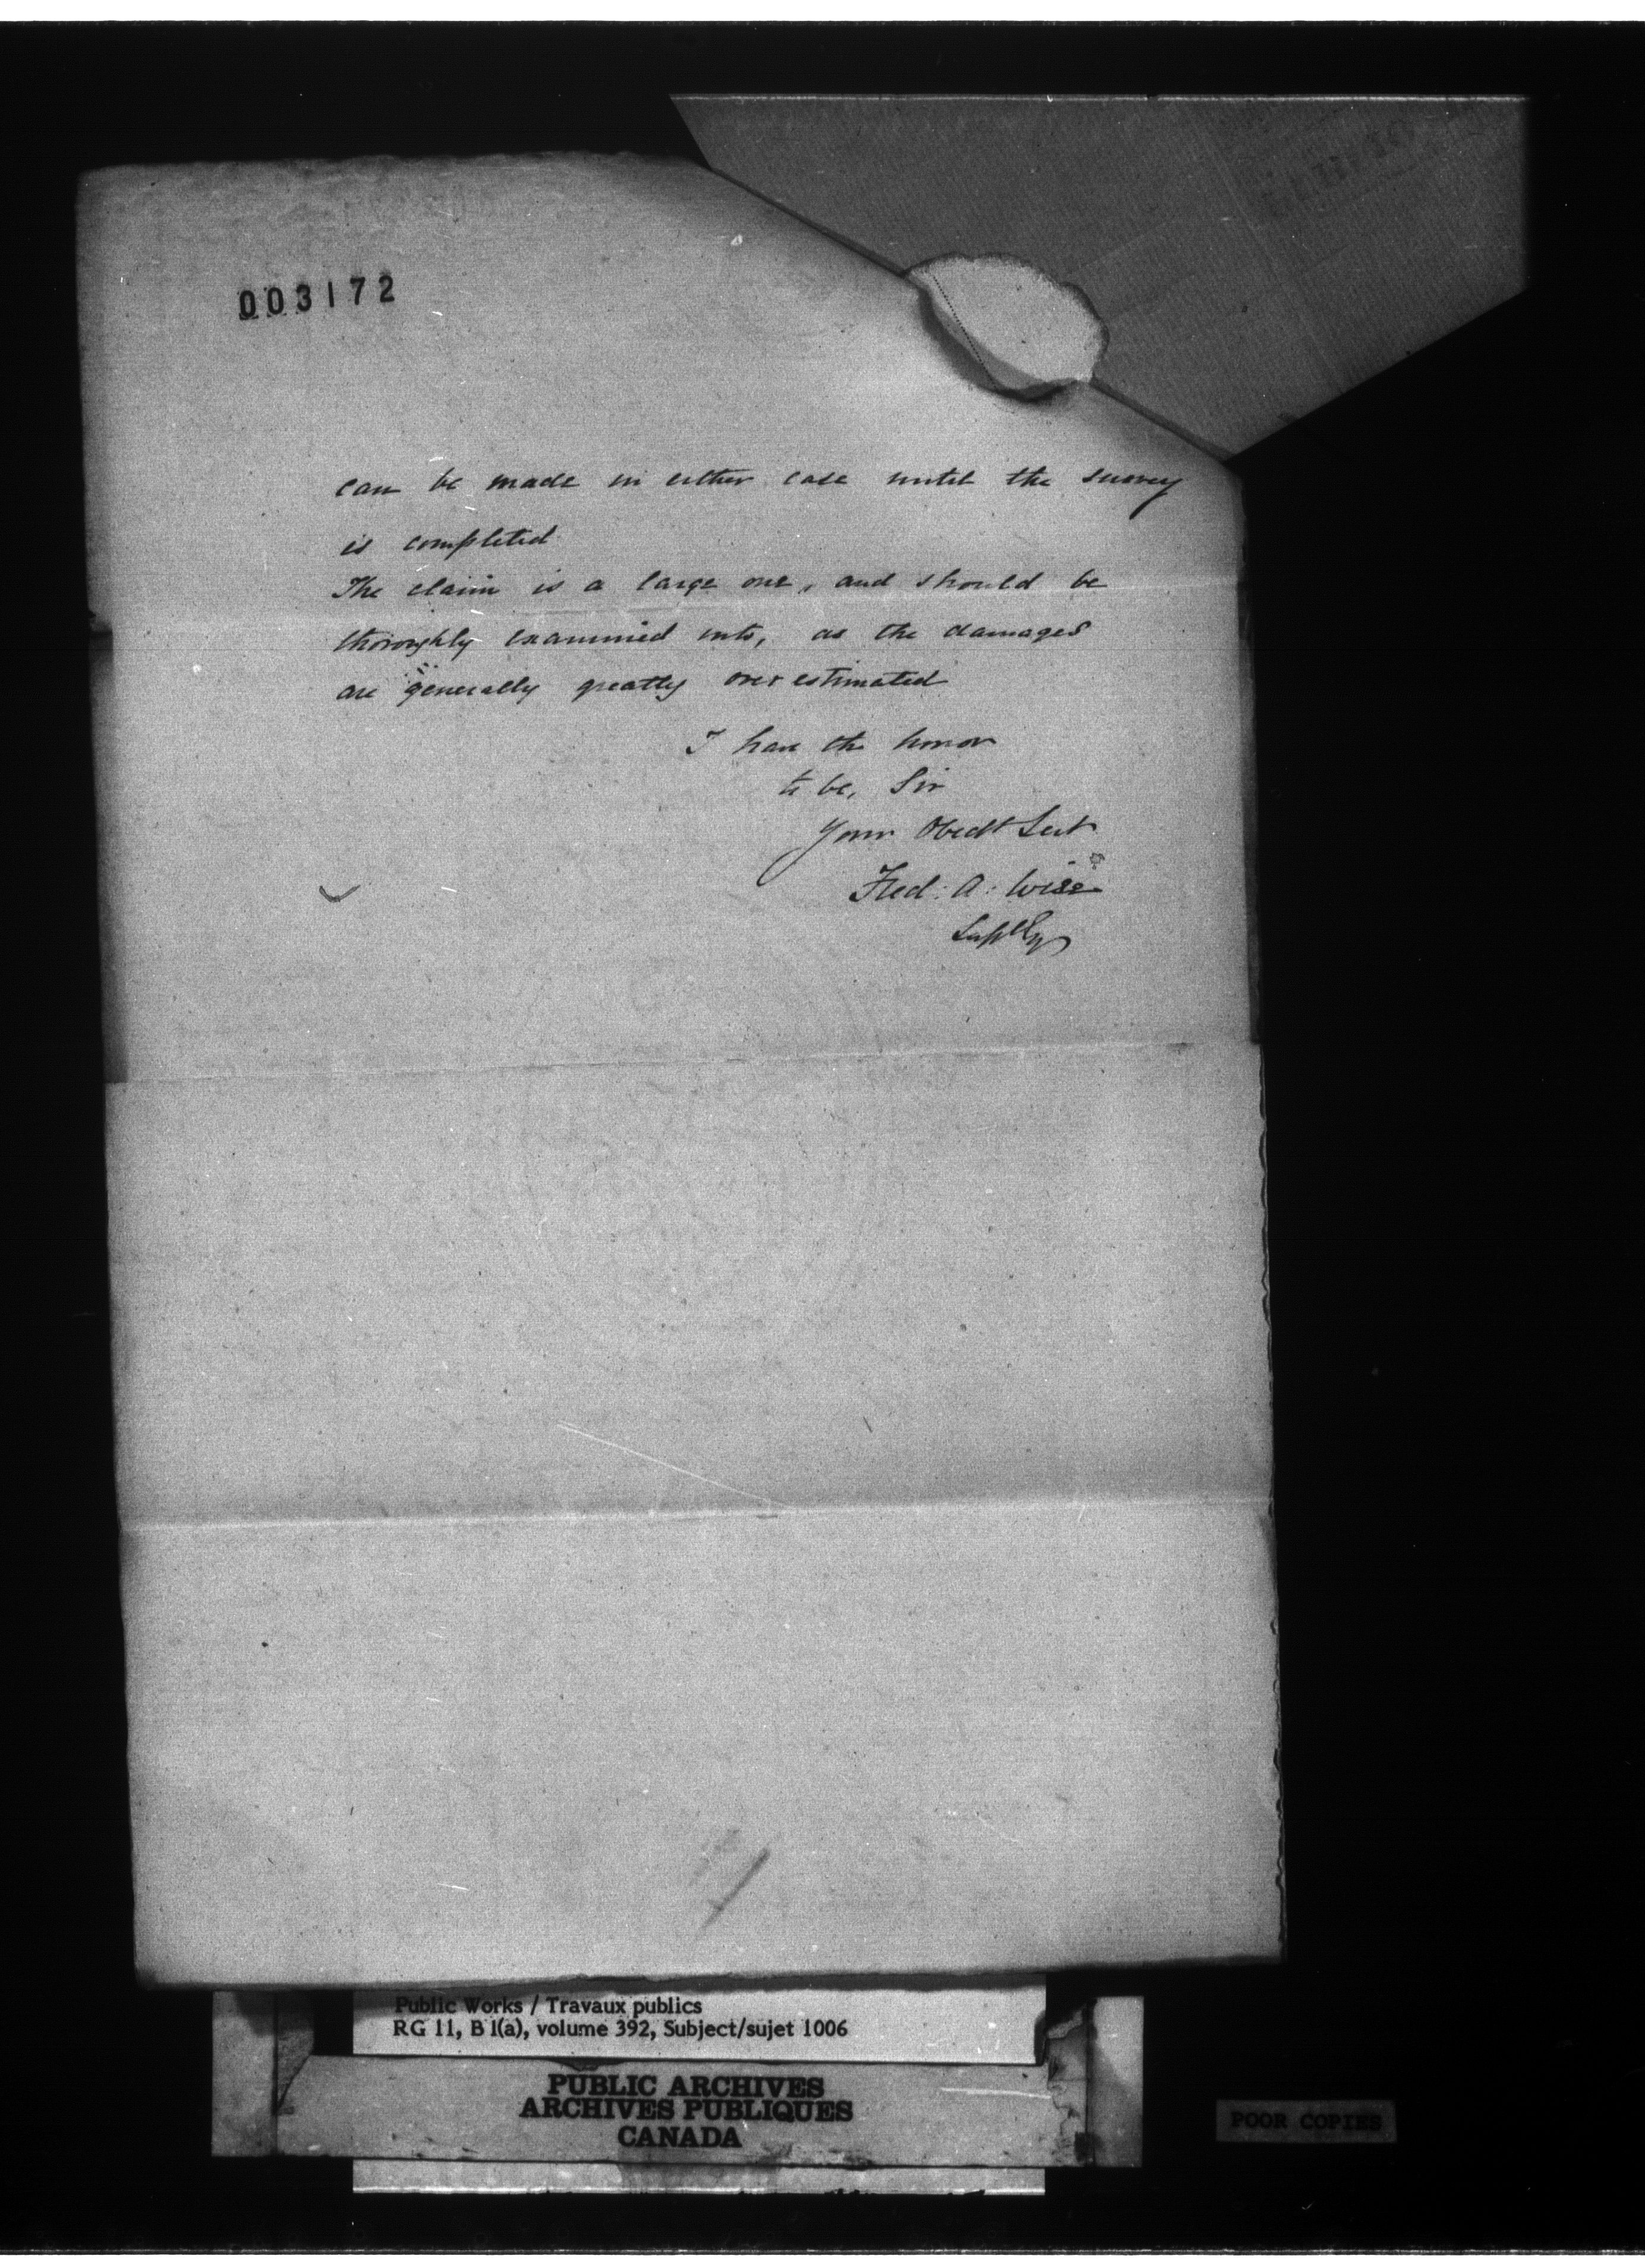 003172
can be made in either case until the survey
is completed
The claim is a large one, and should be
thoroughly examined into, as the damages
are generally greatly over estimated
I have the honor
to be, Sir
Your Obedt Servt
Fred: A: Wise
Supt Eng
Public Works / Travaux publics
RG 11, B 1(a), volume 392, Subject/sujet 1006
PUBLIC ARCHIVES
ARCHIVES PUBLIQUES
CANADA
POOR COPIES